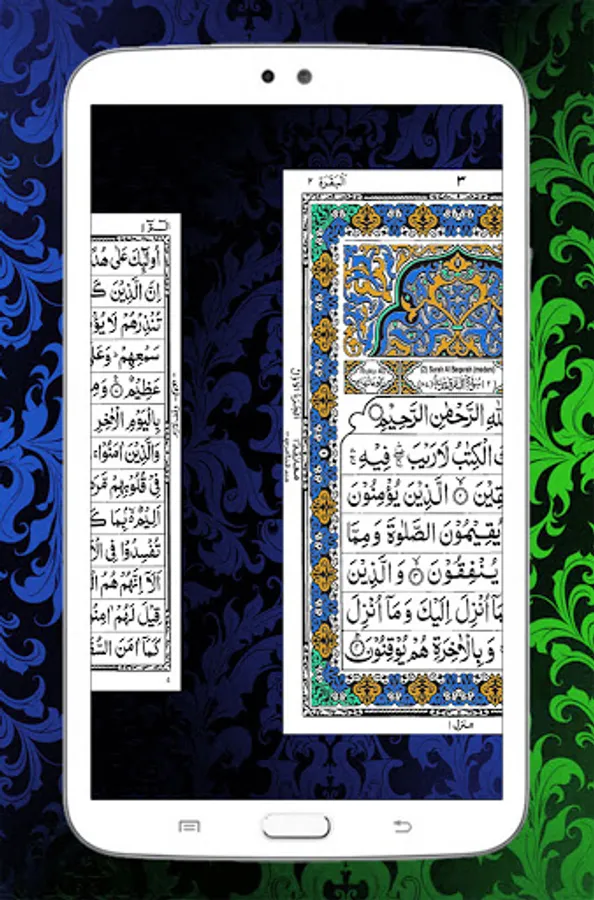 ٣ اَلْبَقَرَة ٢
(2) Surah Al Baqarah (madani)
اللهِ الرَّحْمٰنِ الرَّحِيْمِ
الْكِتٰبُ لَا رَيْبَ فِيْهِ
قِيْنَ ۝ الَّذِيْنَ يُؤْمِنُوْنَ
يُقِيْمُوْنَ الصَّلٰوةَ وَمِمَّا
يُنْفِقُوْنَ ۝ وَالَّذِيْنَ
مَاۤ اُنْزِلَ اِلَيْكَ وَمَاۤ اُنْزِلَ
وَبِالْاٰخِرَةِ هُمْ يُوْقِنُوْنَ ۝
منزل ١
الٓمّٓ ١
اُولٰٓئِكَ عَلٰى هُدً
اِنَّ الَّذِيْنَ كَ
تُنْذِرْهُمْ لَا يُؤْ
سَمْعِهِمْ ؕ وَعَلٰ
عَظِيْمٌ ۝ وَمِ
بِالْيَوْمِ الْاٰخِرِ
وَالَّذِيْنَ اٰمَنُوْا ۚ
فِيْ قُلُوْبِهِمْ مَّرَ
اَلِيْمٌ ۬ۙ بِمَا كَ
تُفْسِدُوْا فِي الْاَ
اَلَاۤ اِنَّهُمْ هُمُ الْ
قِيْلَ لَهُمْ اٰمِنُ
كَمَاۤ اٰمَنَ السُّفَ